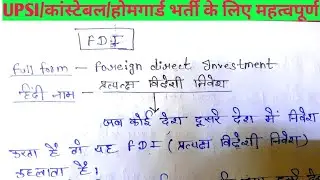 UPSI/कांस्टेबल/होमगार्ड भर्ती के लिए महत्वपूर्ण
FDI
full form - Foreign direct Investment
हिंदी नाम - प्रत्यक्ष विदेशी निवेश
जब कोई देश दूसरे देश में निवेश
करता है तो यह FDI (प्रत्यक्ष विदेशी निवेश)
कहलाता है।